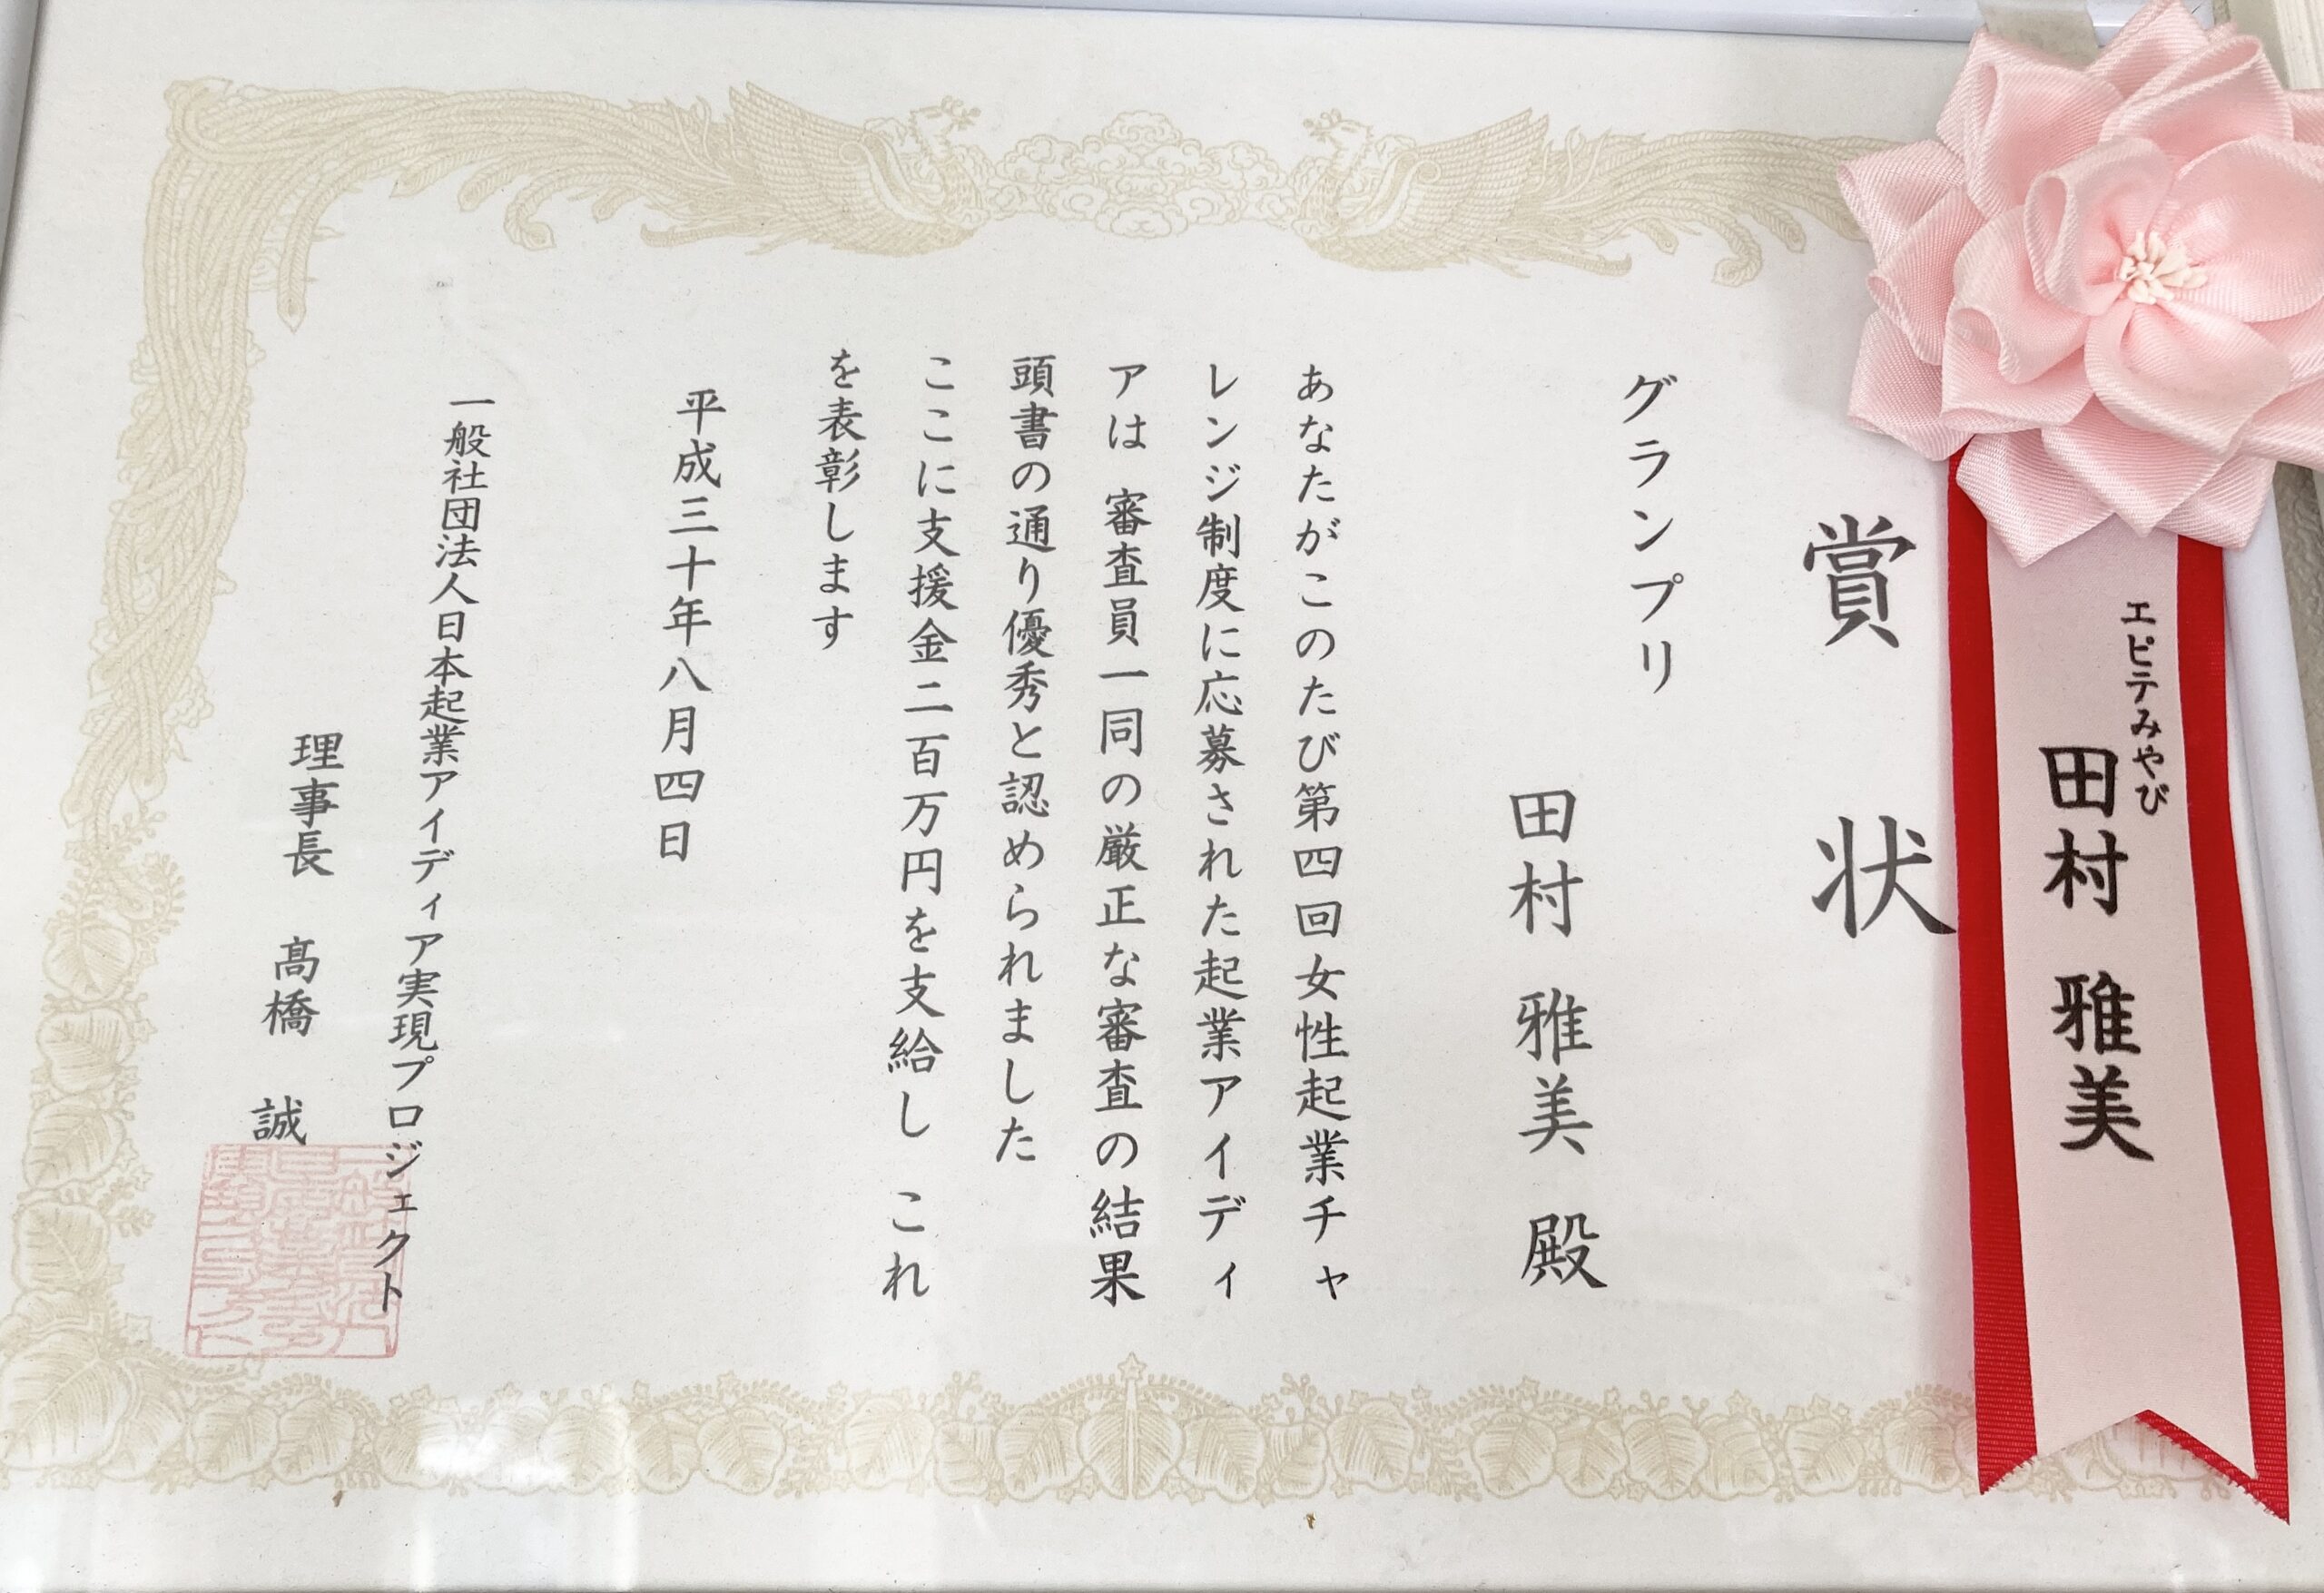 エピテみやび
田村 雅美
賞 状
グランプリ
田村 雅美 殿
あなたがこのたび第四回女性起業チャ
レンジ制度に応募された起業アイディ
アは 審査員一同の厳正な審査の結果
頭書の通り優秀と認められました
ここに支援金二百万円を支給し これ
を表彰します
平成三十年八月四日
一般社団法人日本起業アイディア実現プロジェクト
理事長 髙橋 誠